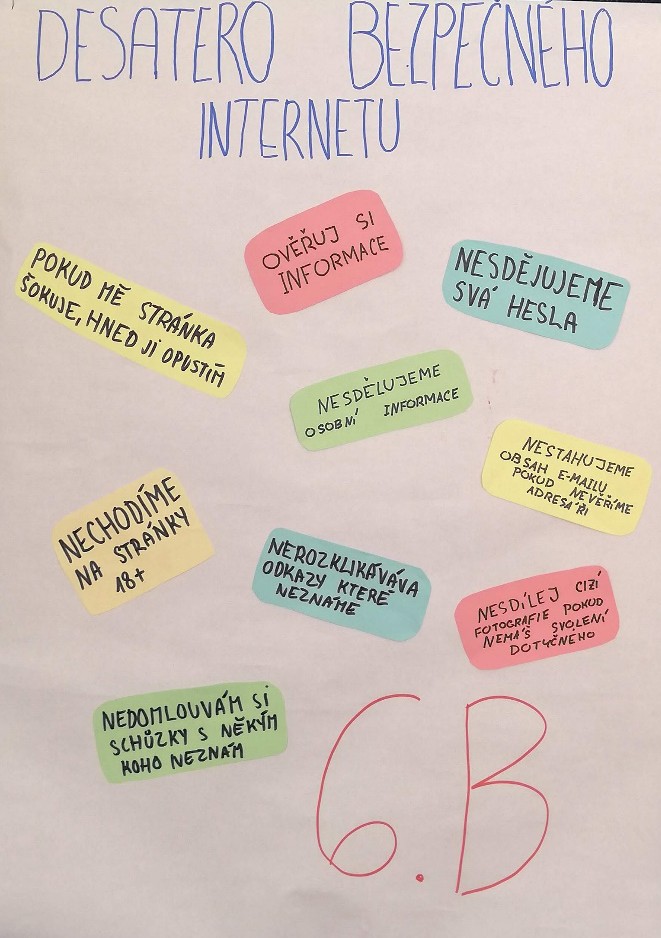 DESATERO BEZPEČNÉHO
INTERNETU
OVĚŘUJ SI
INFORMACE
POKUD MĚ STRÁNKA
ŠOKUJE, HNED JI OPUSTÍM
NESDĚJUJEME
SVÁ HESLA
NESDĚLUJEME
OSOBNÍ INFORMACE
NESTAHUJEME
OBSAH E-MAILU
POKUD NEVĚŘÍME
ADRESÁŘI
NECHODÍME
NA STRÁNKY
18+
NEROZKLIKÁVÁVA
ODKAZY KTERÉ
NEZNÁME
NESDÍLEJ CIZÍ
FOTOGRAFIE POKUD
NEMÁŠ SVOLENÍ
DOTYČNÉHO
NEDOMLOUVÁM SI
SCHŮZKY S NĚKÝM
KOHO NEZNÁM
6.B